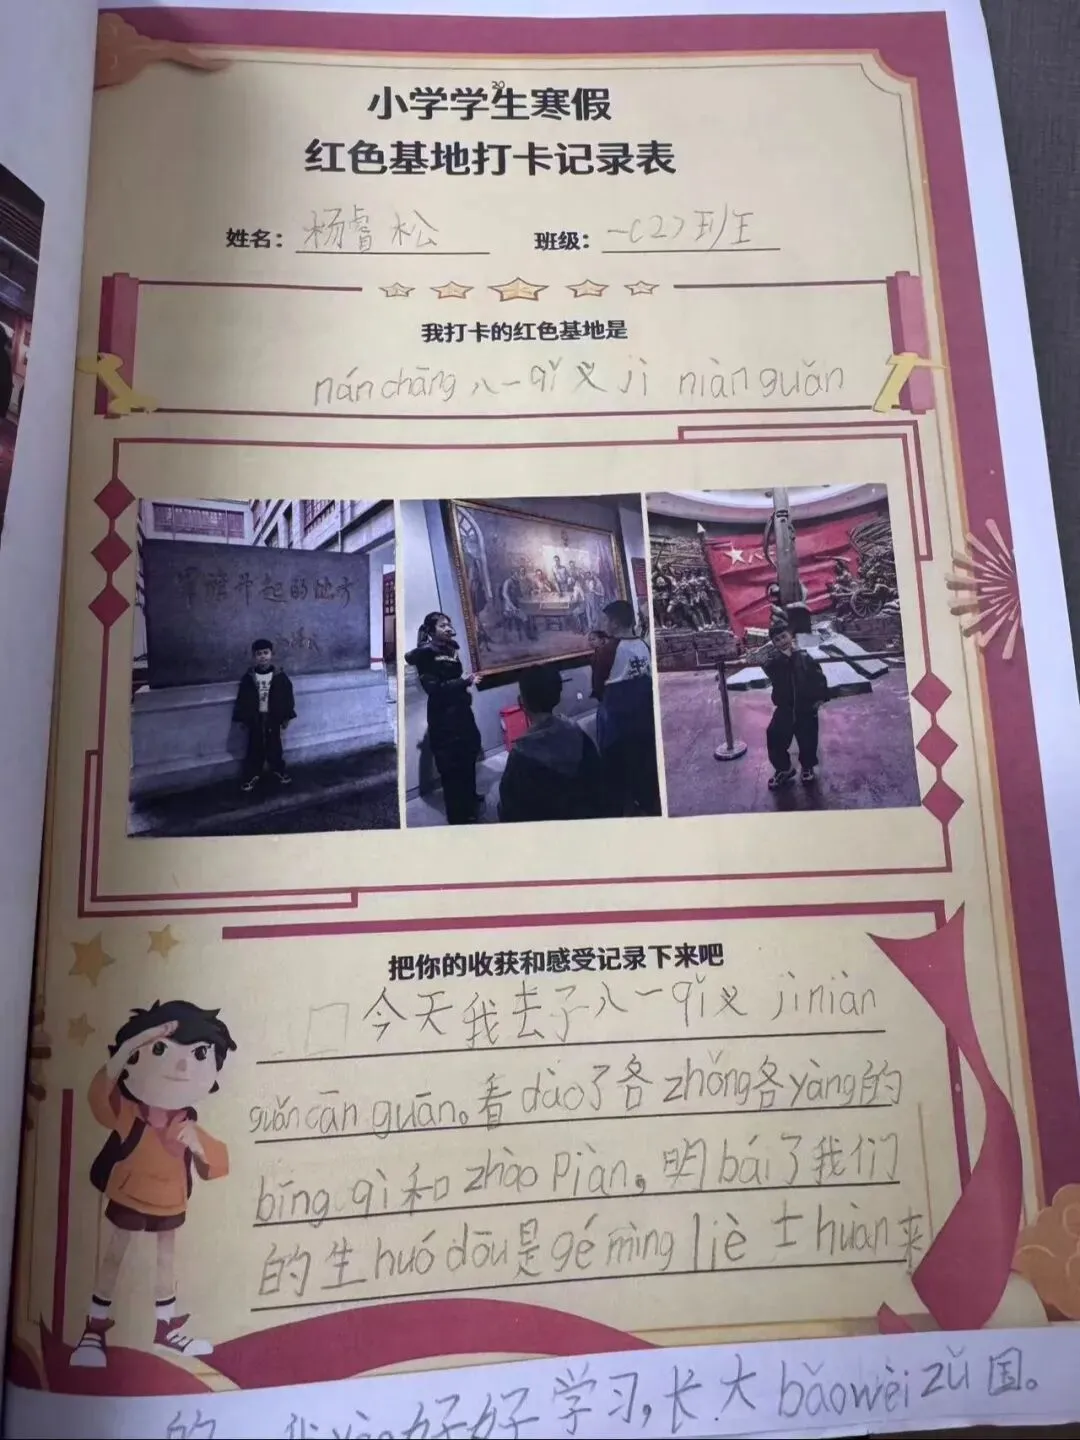 小学学生寒假
红色基地打卡记录表
姓名：杨睿松 班级：一（2）班
我打卡的红色基地是
nán chāng 八一 qǐ 义 jì niàn guǎn
军旗升起的地方
把你的收获和感受记录下来吧
今天我去了八一 qǐ 义 jì niàn
guǎn cān guān。看 dào 了各 zhǒng 各 yàng 的
bīng qì 和 zhào piàn。明 bái 了我们
的生 huó dōu 是 gé mìng liè 士 huàn 来
的。我 yào 好好学习，长大 bǎo wèi zǔ 国。